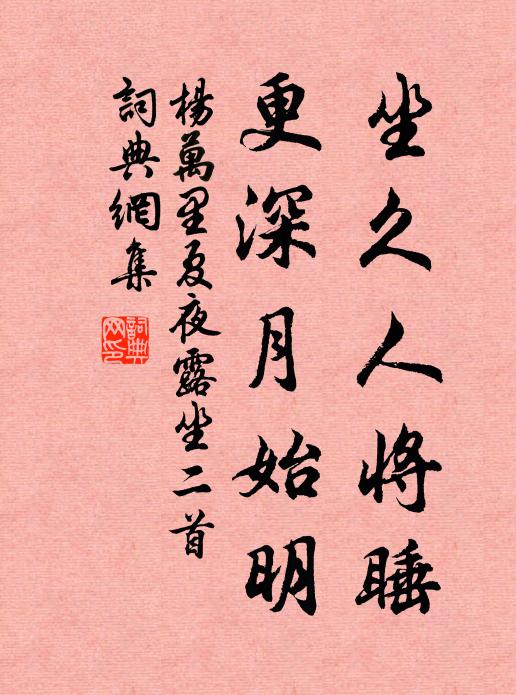 坐久人将睡
更深月始明
楊萬里夏夜露坐二首
詞典網集
詞典網印